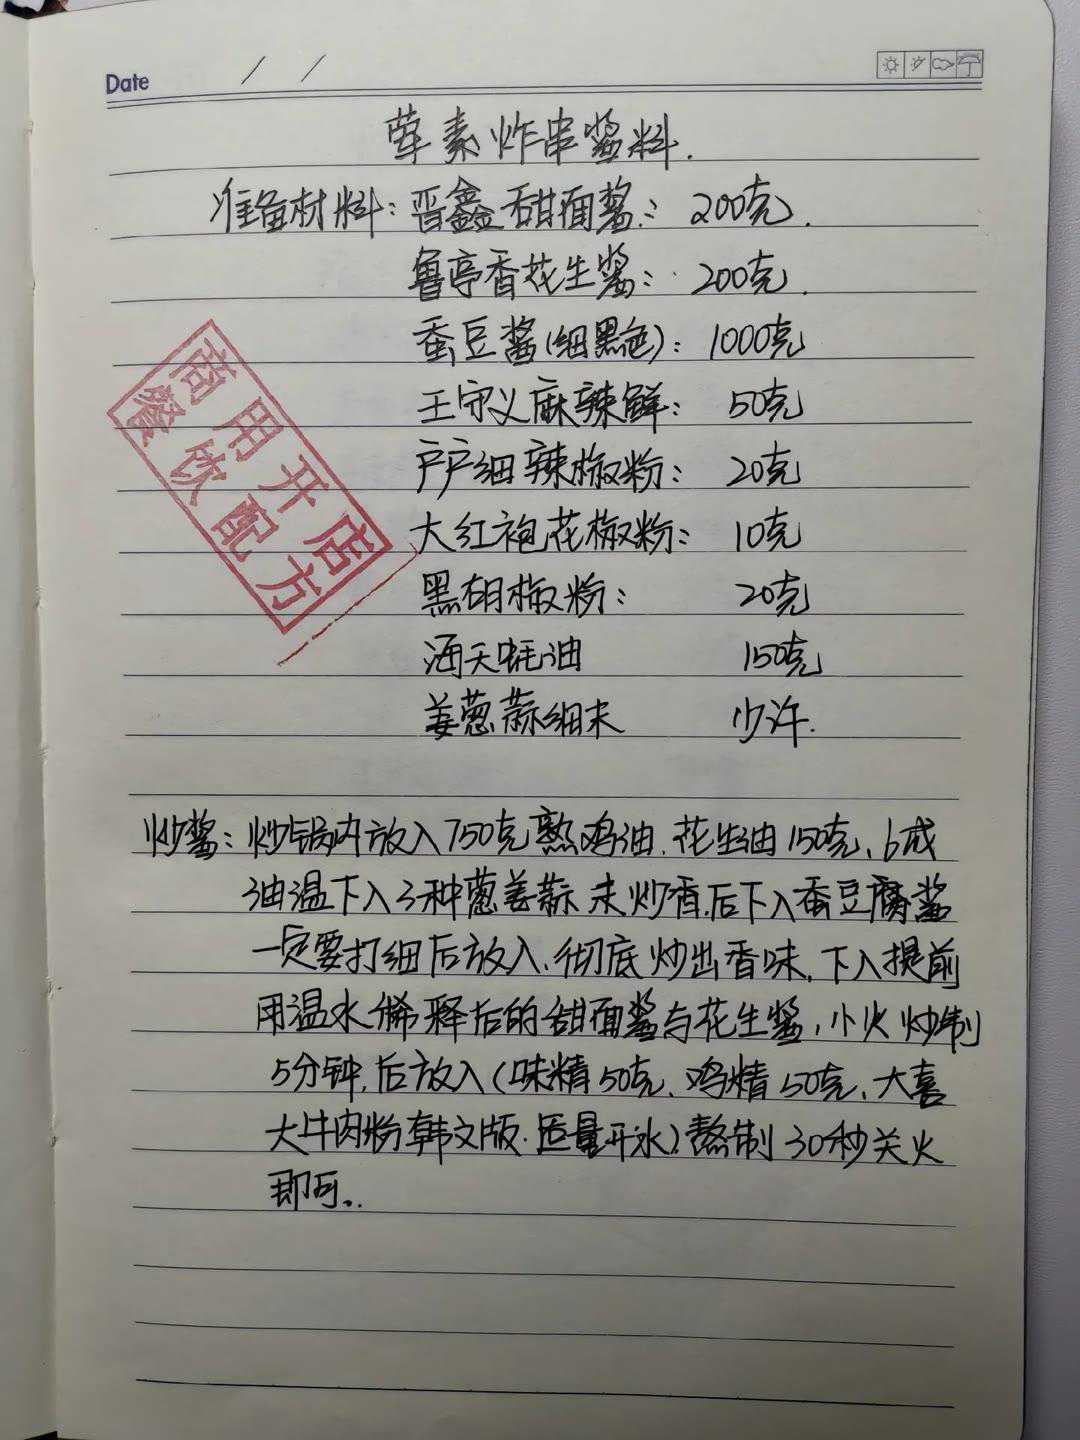 Date / /
荤素炸串酱料.
准备材料:晋鑫甜面酱: 200克.
鲁亭香花生酱: 200克.
蚕豆酱(细黑色): 1000克
王守义麻辣鲜: 50克
户户细辣椒粉: 20克
大红袍花椒粉: 10克
黑胡椒粉: 20克
海天蚝油 150克
姜葱蒜细末 少许.
商用开店
餐饮配方
炒酱:炒锅内放入750克熟鸡油.花生油150克、6成
油温下入3种葱姜蒜末炒香.后下入蚕豆腐酱
一定要打细后放入.彻底炒出香味.下入提前
用温水稀释后的甜面酱与花生酱,小火炒制
5分钟.后放入(味精50克、鸡精50克、大喜
大牛肉粉韩文版.适量开水)熬制30秒关火
即可..